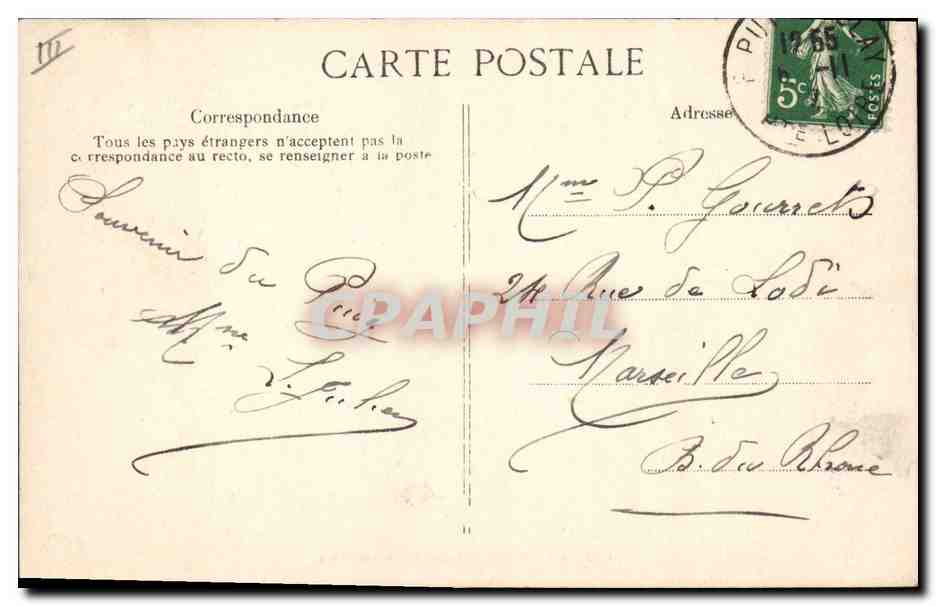 III
CARTE POSTALE
Correspondance
Tous les pays étrangers n'acceptent pas la
correspondance au recto, se renseigner à la poste
Souvenir
du Puy
Mme
Adresse
5c
POSTES
12 55
-11
LOIRE
Mme P. Gourret
24 Rue de Lodi
Marseille
B. du Rhone
CPAPHIL